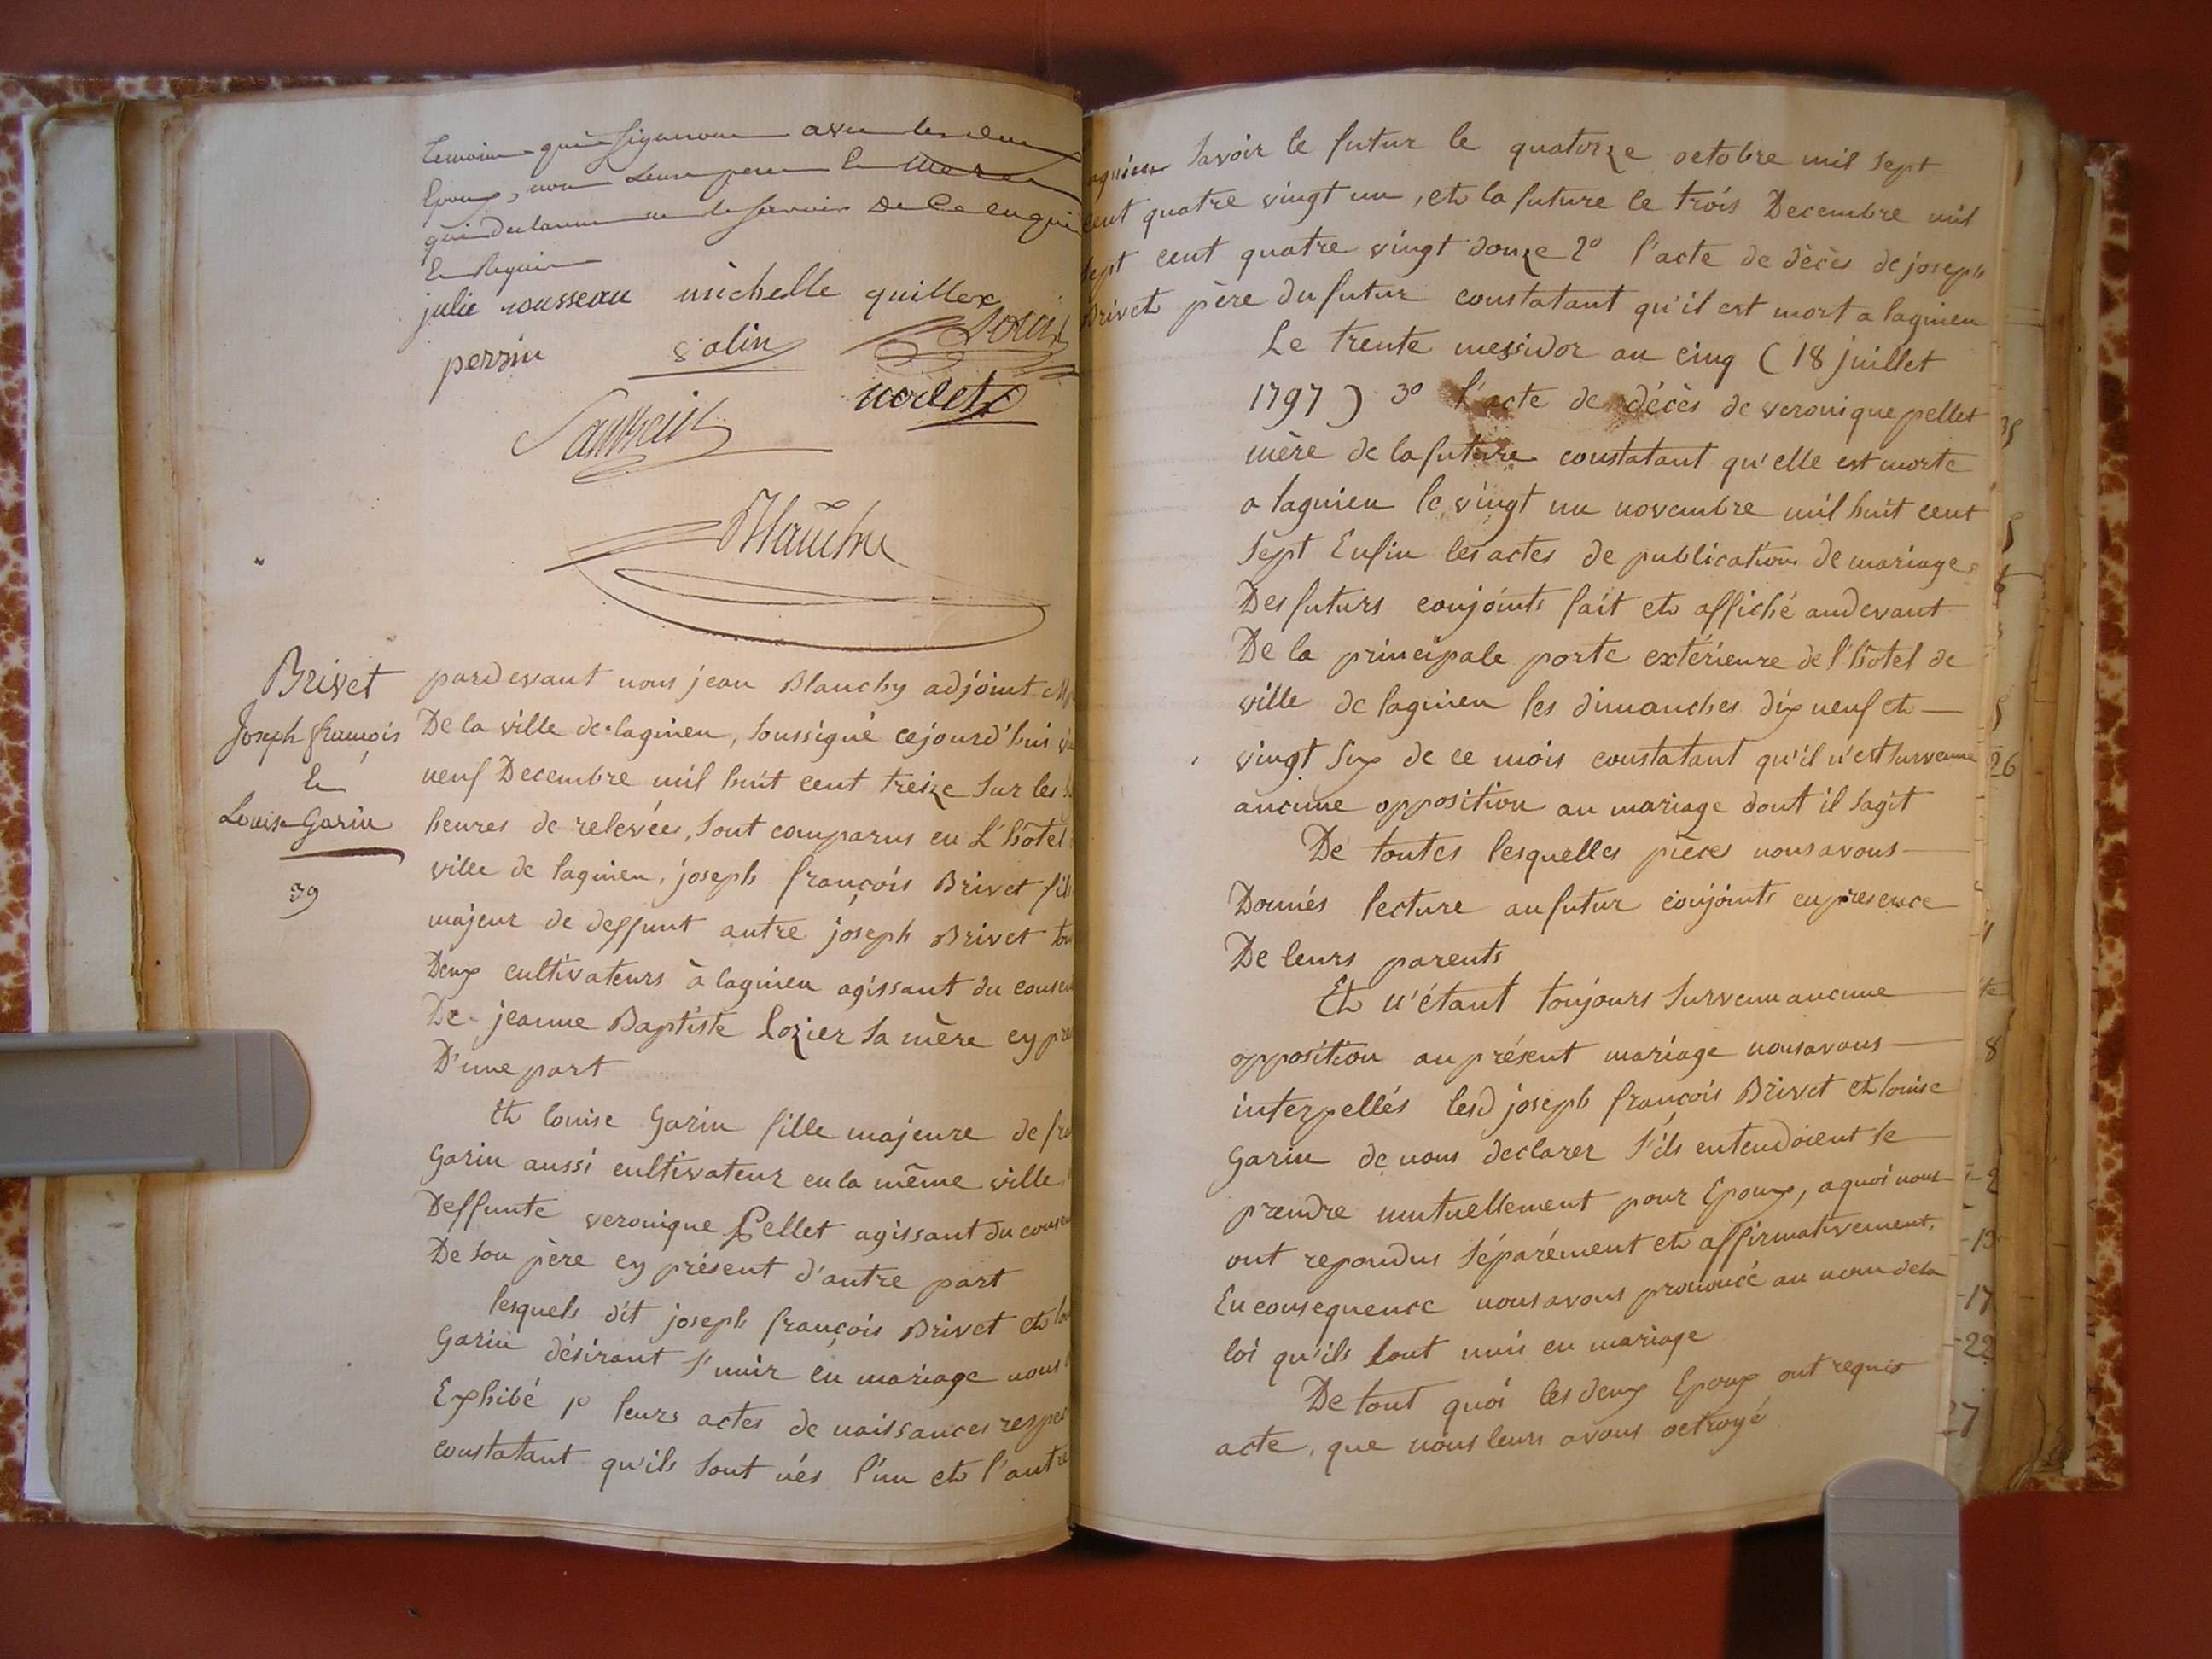 temoins qui signeront avec les deux
Epoux, non leurs peres et Meres
qui declarent ne le savoir De Ce enquis
Et Requis
julie rousseau michelle quillex
perrin salin
nodet
Blanchy
Brivet
Joseph françois
Et
Louise Garin
39
pardevant nous jean Blanchy adjoint
De la ville de lagnieu, Soussigné cejourd'hui
neuf Decembre mil huit cent treize Sur les
heures de relevées, Sont comparus en L'hôtel
ville de lagnieu, joseph françois Brivet fils
majeur de deffunt autre joseph Brivet tou
Deux cultivateurs à lagnieu agissant du consen
De jeanne Baptiste lozier Sa mère cy pre
D'une part
Et louise Garin fille majeure de fra
Garin aussi cultivateur en la même ville
Deffunte veronique Pellet agissant du consen
De Son père cy présent d'autre part
lesquels dit joseph françois Brivet et lou
Garin désirant S'unir en mariage nous
Exhibé 1º leurs actes de naissances respec
constatant qu'ils Sont nés l'un et l'autre
agnieu Savoir le futur le quatorze octobre mil Sept
cent quatre vingt un, et la future le trois Decembre mil
Sept cent quatre vingt douze 2º l'acte de décès de joseph
Brivet père du futur constatant qu'il est mort a lagnieu
Le trente messidor an cinq (18 juillet
1797) 3º l'acte de décès de veronique pellet
mère de la future constatant qu'elle est morte
a lagnieu le vingt un novembre mil huit cent
Sept Enfin les actes de publications de mariage
Des futurs conjoints fait et affiché audevant
De la principale porte extérieure de l'hôtel de
ville de lagnieu les dimanches dix neuf et
vingt Six de ce mois constatant qu'il n'est Survenue
aucune opposition au mariage dont il Sagit
De toutes lesquelles pièces nous avons
Donnés lecture au futur conjoints en presence
De leurs parents
Et n'étant toujours Survenu aucune
opposition au présent mariage nous avons
interpellés lesd joseph françois Brivet et louise
Garin de nous declarer S'ils entendoient Se
prendre mutuellement pour Epoux, a quoi nous
ont repondus Séparément et affirmativement,
En consequence nous avons prononcé au nom de la
loi qu'ils Sont unis en mariage
De tout quoi les deux Epoux ont requis
acte, que nous leurs avons octroyé
26
8
-17
-22
27